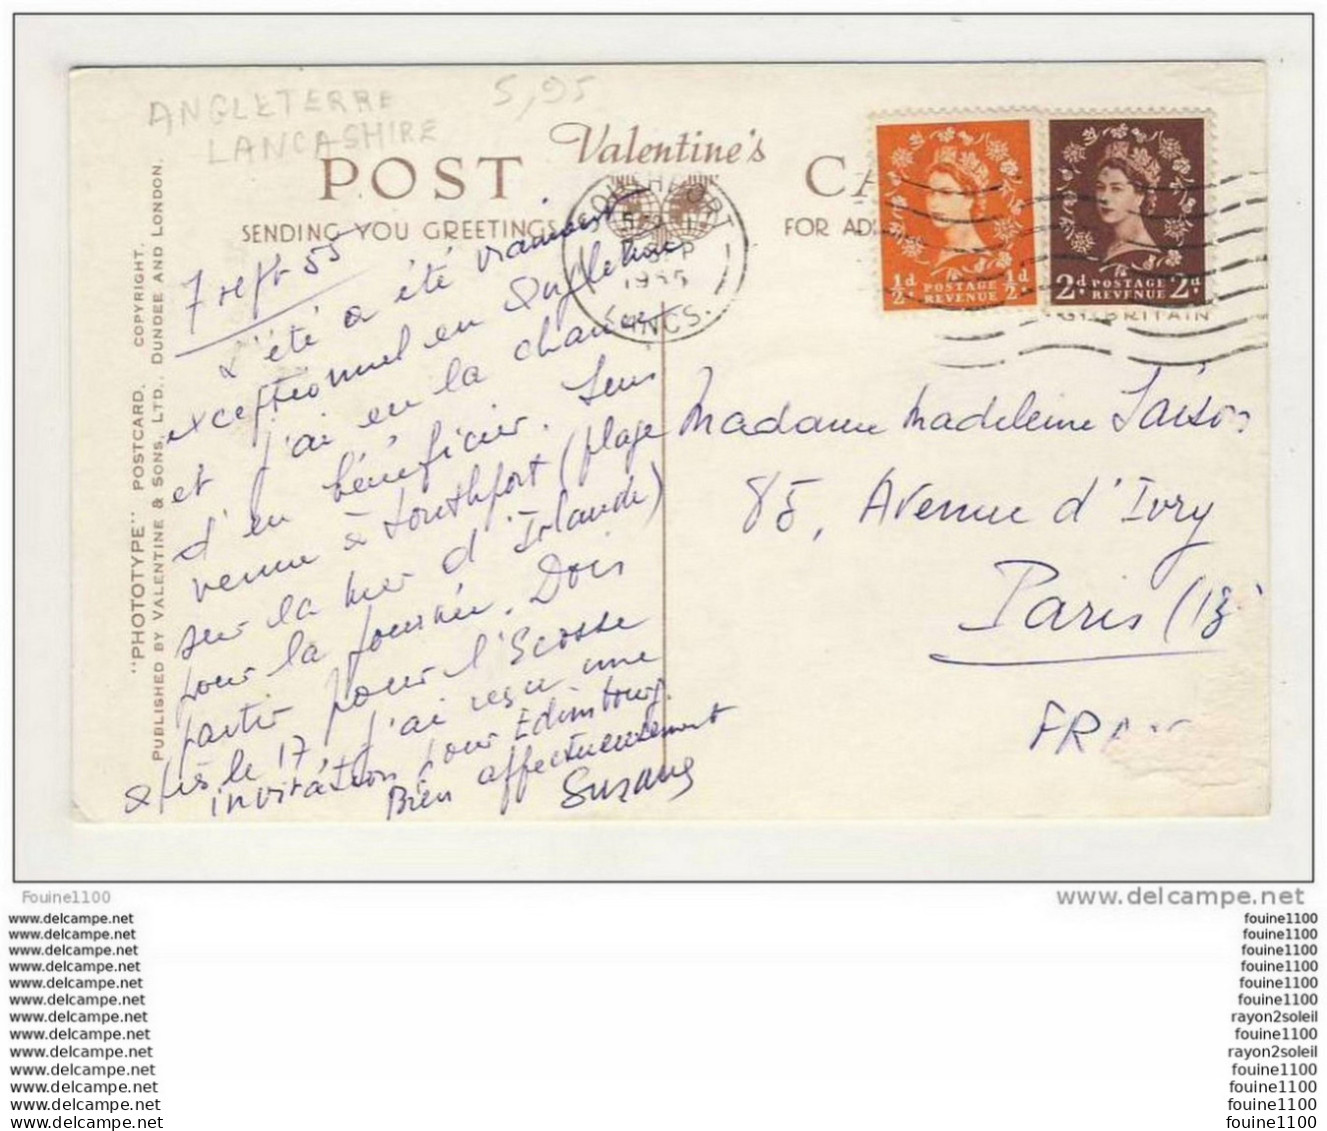 ANGLETERRE
LANCASHIRE
5,95
POST
Valentine's
SENDING YOU GREETINGS
FOR
"PHOTOTYPE" POSTCARD. COPYRIGHT.
PUBLISHED BY VALENTINE & SONS, LTD., DUNDEE AND LONDON.
SOUTHPORT
1955
LANCS.
½d POSTAGE REVENUE ½d
2d POSTAGE REVENUE 2d
GT. BRITAIN
7 sept 55
L'été a été vraiment
exceptionnel en Angleterre
et j'ai eu la chance
d'en bénéficier. Suis
venue à Southport (plage
sur la mer d'Irlande)
pour la journée. Dois
partir pour l'Ecosse
le 17 j'ai reçu une
invitation pour Edimbourg.
Bien affectueusement
Suzanne
Madame Madeleine
85, Avenue d'Ivry
Paris (13
FRA
Fouine1100
www.delcampe.net
www.delcampe.net
www.delcampe.net
www.delcampe.net
www.delcampe.net
www.delcampe.net
www.delcampe.net
www.delcampe.net
www.delcampe.net
www.delcampe.net
www.delcampe.net
www.delcampe.net
www.delcampe.net
www.delcampe.net
fouine1100
fouine1100
fouine1100
fouine1100
fouine1100
fouine1100
rayon2soleil
fouine1100
rayon2soleil
fouine1100
fouine1100
fouine1100
fouine1100